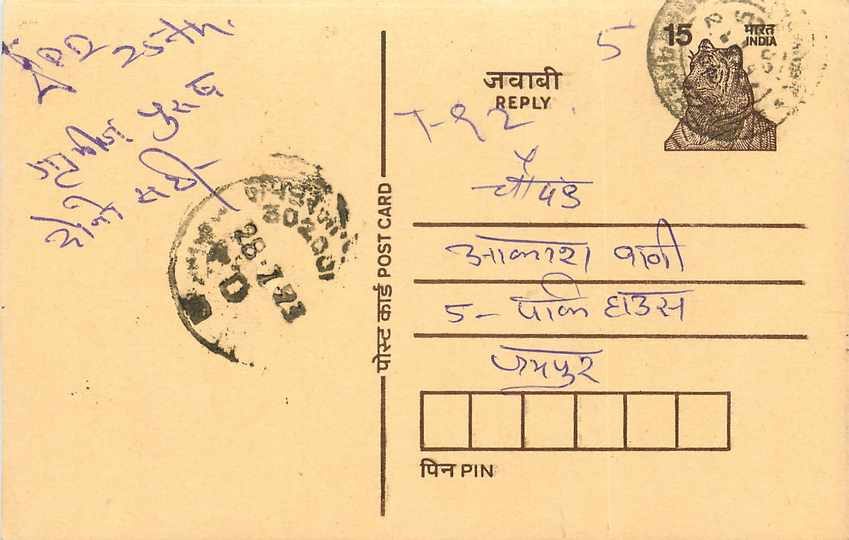 25th.
पुरुष
दोनो
302001
28.1.93
पोस्ट कार्ड POST CARD
5
15
भारत
INDIA
जवाबी
REPLY
T-92
चौपड
आकाश वानी
5- पार्क हाउस
जयपुर
पिन PIN